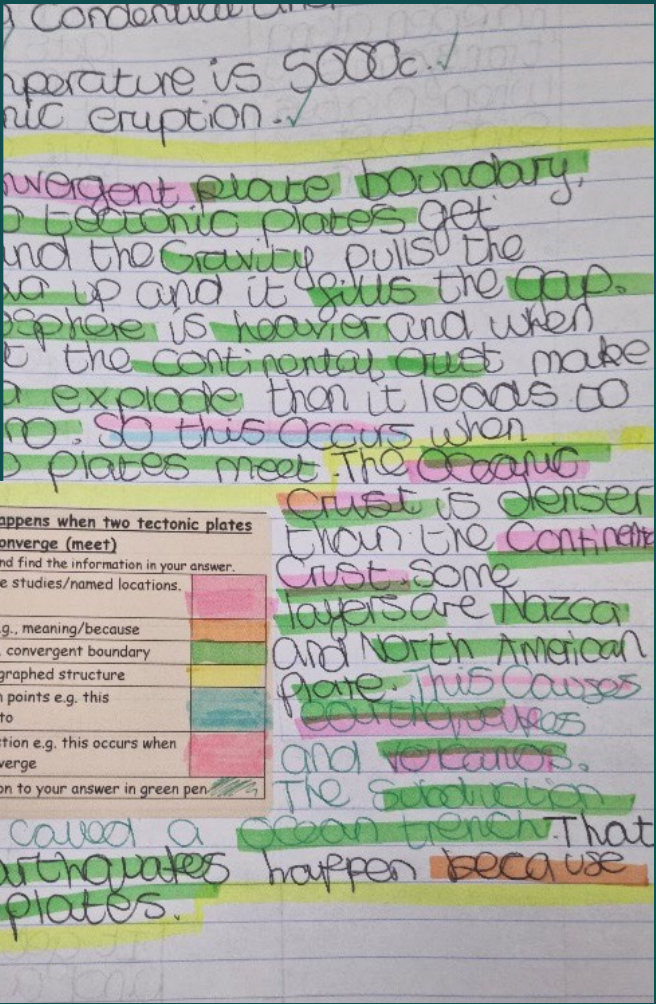 Condensed and
perature is 5000c.
nic eruption.
nvergent plate boundary,
tectonic plates get
and the Gravity pulls the
up and it fills the Gap.
osphere is heavier and when
t the continental crust make
a explode then it leads to
no. So this occurs when
plates meet. The Oceanic
Crust is denser
than the Continenta
Crust. Some
layers are Nazca
and North American
Plate. This causes
earthquakes
and volcanos.
The Subduction
called a ocean trench. That
arthquakes happen because
plates.
appens when two tectonic plates
onverge (meet)
nd find the information in your answer.
e studies/named locations.
.g., meaning/because
convergent boundary
graphed structure
n points e.g. this
to
tion e.g. this occurs when
verge
on to your answer in green pen